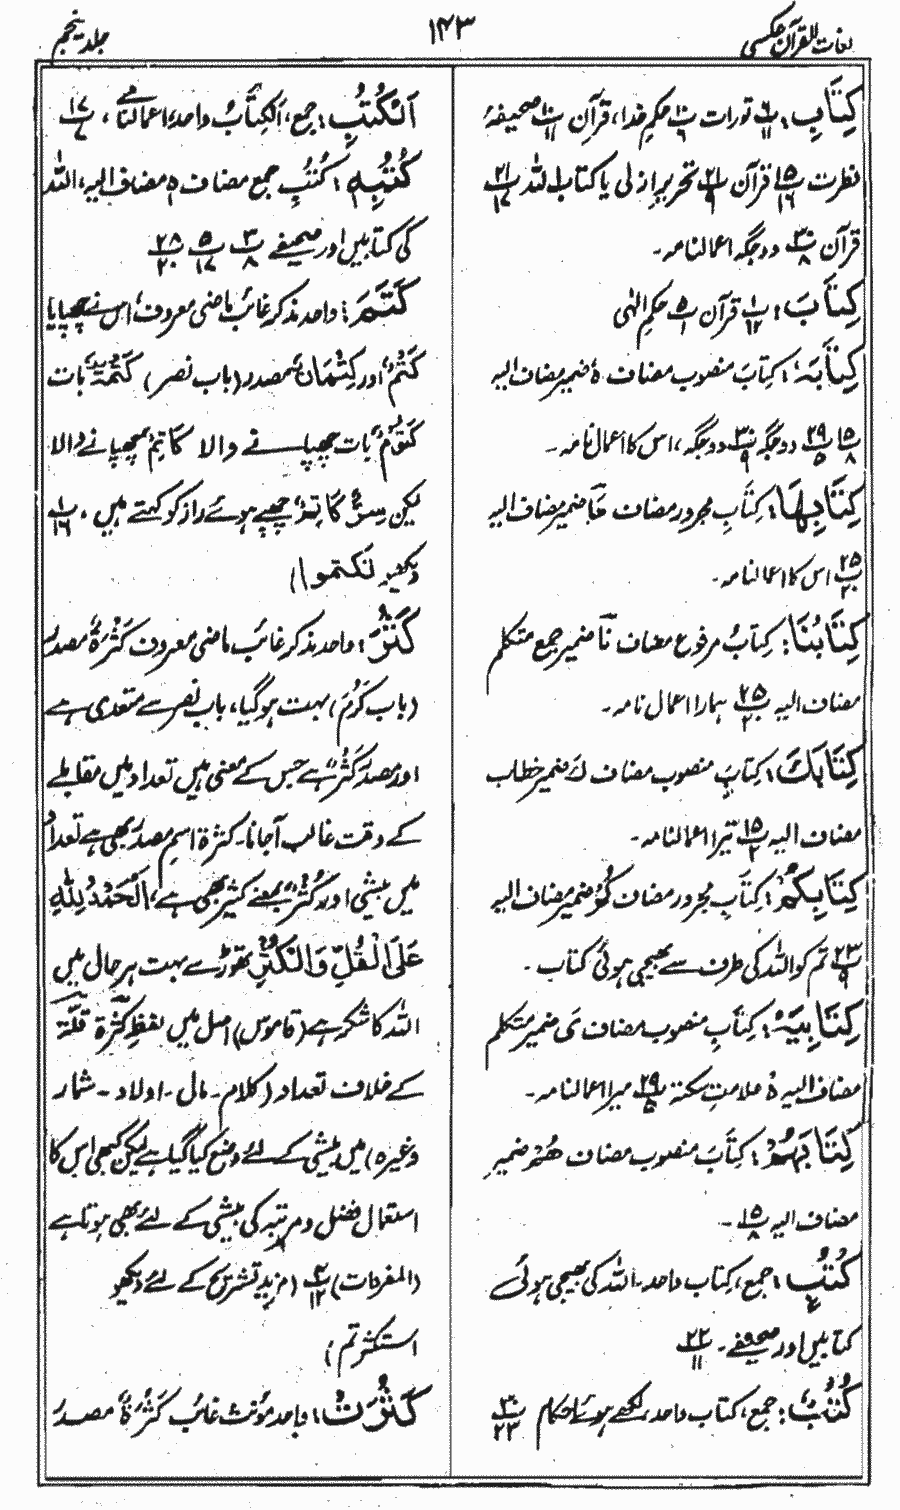 لغات القرآن عکسی
۱۴۳
جلد پنجم
کِتَابٍ: تورات حکم خدا، قرآن صحیفۂ
فطرت ۱۵/۱۶ قرآن ۲۱/۹ تحریر ازلی یا کتاب اللہ ۲۱/۱۷
قرآن ۳۰/۸ دو جگہ اعمالنامہ۔
کِتَابَ: قرآن حکمِ الٰہی
کِتَابَہٗ: کِتَابَ منصوب مضاف ہٗ ضمیر مضاف الیہ
۱۵/۸ ۲۹/۵ دو جگہ ۳۰/۹ دو جگہ، اس کا اعمال نامہ۔
کِتَابِهَا: کِتَابِ مجرور مضاف ھَا ضمیر مضاف الیہ
۲۵/۲۰ اس کا اعمالنامہ۔
کِتَابُنَا: کِتَابُ مرفوع مضاف نَا ضمیر جمع متکلم
مضاف الیہ ۲۵/۲۰ ہمارا اعمال نامہ۔
کِتَابَكَ: کِتَابَ منصوب مضاف كَ ضمیر خطاب
مضاف الیہ ۱۵/۲ تیرا اعمالنامہ۔
کِتَابِکُمْ: کِتَابِ مجرور مضاف کُمْ ضمیر مضاف الیہ
۲۳/۹ تم کو اللہ کی طرف سے بھیجی ہوئی کتاب۔
کِتَابِیَہْ: کِتَابِ منصوب مضاف یَ ضمیر متکلم
مضاف الیہ ہْ علامتِ سکتہ ۲۹/۵ میرا اعمالنامہ۔
کِتَابَهُمْ: کِتَابَ منصوب مضاف ھُمْ ضمیر
مضاف الیہ ۱۵/۸۔
کُتُبٍ: جمع، کِتَاب واحد۔ اللہ کی بھیجی ہوئی
کتابیں اور صحیفے۔ ۲۲/۱۱
کُتُبٌ: جمع، کتاب واحد، لکھے ہوئے احکام ۳۰/۲۳
اَلْکُتُبِ: جمع، اَلْکِتَابُ واحد، اعمالنامے، ۱۷/۷
کُتُبِہٖ: کُتُبِ جمع مضاف ہٖ مضاف الیہ، اللہ
کی کتابیں اور صحیفے ۳/۸ ۵/۱۷ ۲۸/۲۰
کَتَمَ: واحد مذکر غائب ماضی معروف، اس نے چھپایا
کَتْمٌ اور کِتْمَانٌ مصدر (باب نصر) کَتْمَۃٌ بات
بات چھپانے والا کَاتِمٌ چھپانے والا
لیکن سِرٌّ کَاتِمٌ، چھپے ہوئے راز کو کہتے ہیں، ۱/۱۶
(دیکھو تکتموا)
کَثُرَ: واحد مذکر غائب ماضی معروف کَثْرَۃٌ مصدر
(باب کَرُمَ) بہت ہو گیا، باب نصر سے متعدی ہے
اور مصدر کَثْرٌ ہے جس کے معنی ہیں تعداد میں مقابلے
کے وقت غالب آ جانا۔ کثرۃ اسم مصدر بھی ہے تعداد
میں بیشی اور کُثْرٌ بمعنے کثیر بھی ہے، اَلْحَمْدُ لِلّٰہِ
عَلَی الْقُلِّ وَالْکُثْرِ تھوڑے سے بہت ہر حال میں
اللہ کا شکر ہے (قاموس) اصل میں لفظِ کثرۃ قلّۃ
کے خلاف تعداد (کلام۔ مال۔ اولاد۔ شمار
وغیرہ) میں بیشی کے لئے وضع کیا گیا ہے لیکن کبھی اس کا
استعمال فضل و مرتبہ کی بیشی کے لئے بھی ہوتا ہے
(المفردات) ۴/۱۲ (مزید تشریح کے لئے دیکھو
استکثرتم)
کَثُرَتْ: واحد مؤنث غائب کَثْرَۃٌ مصدر